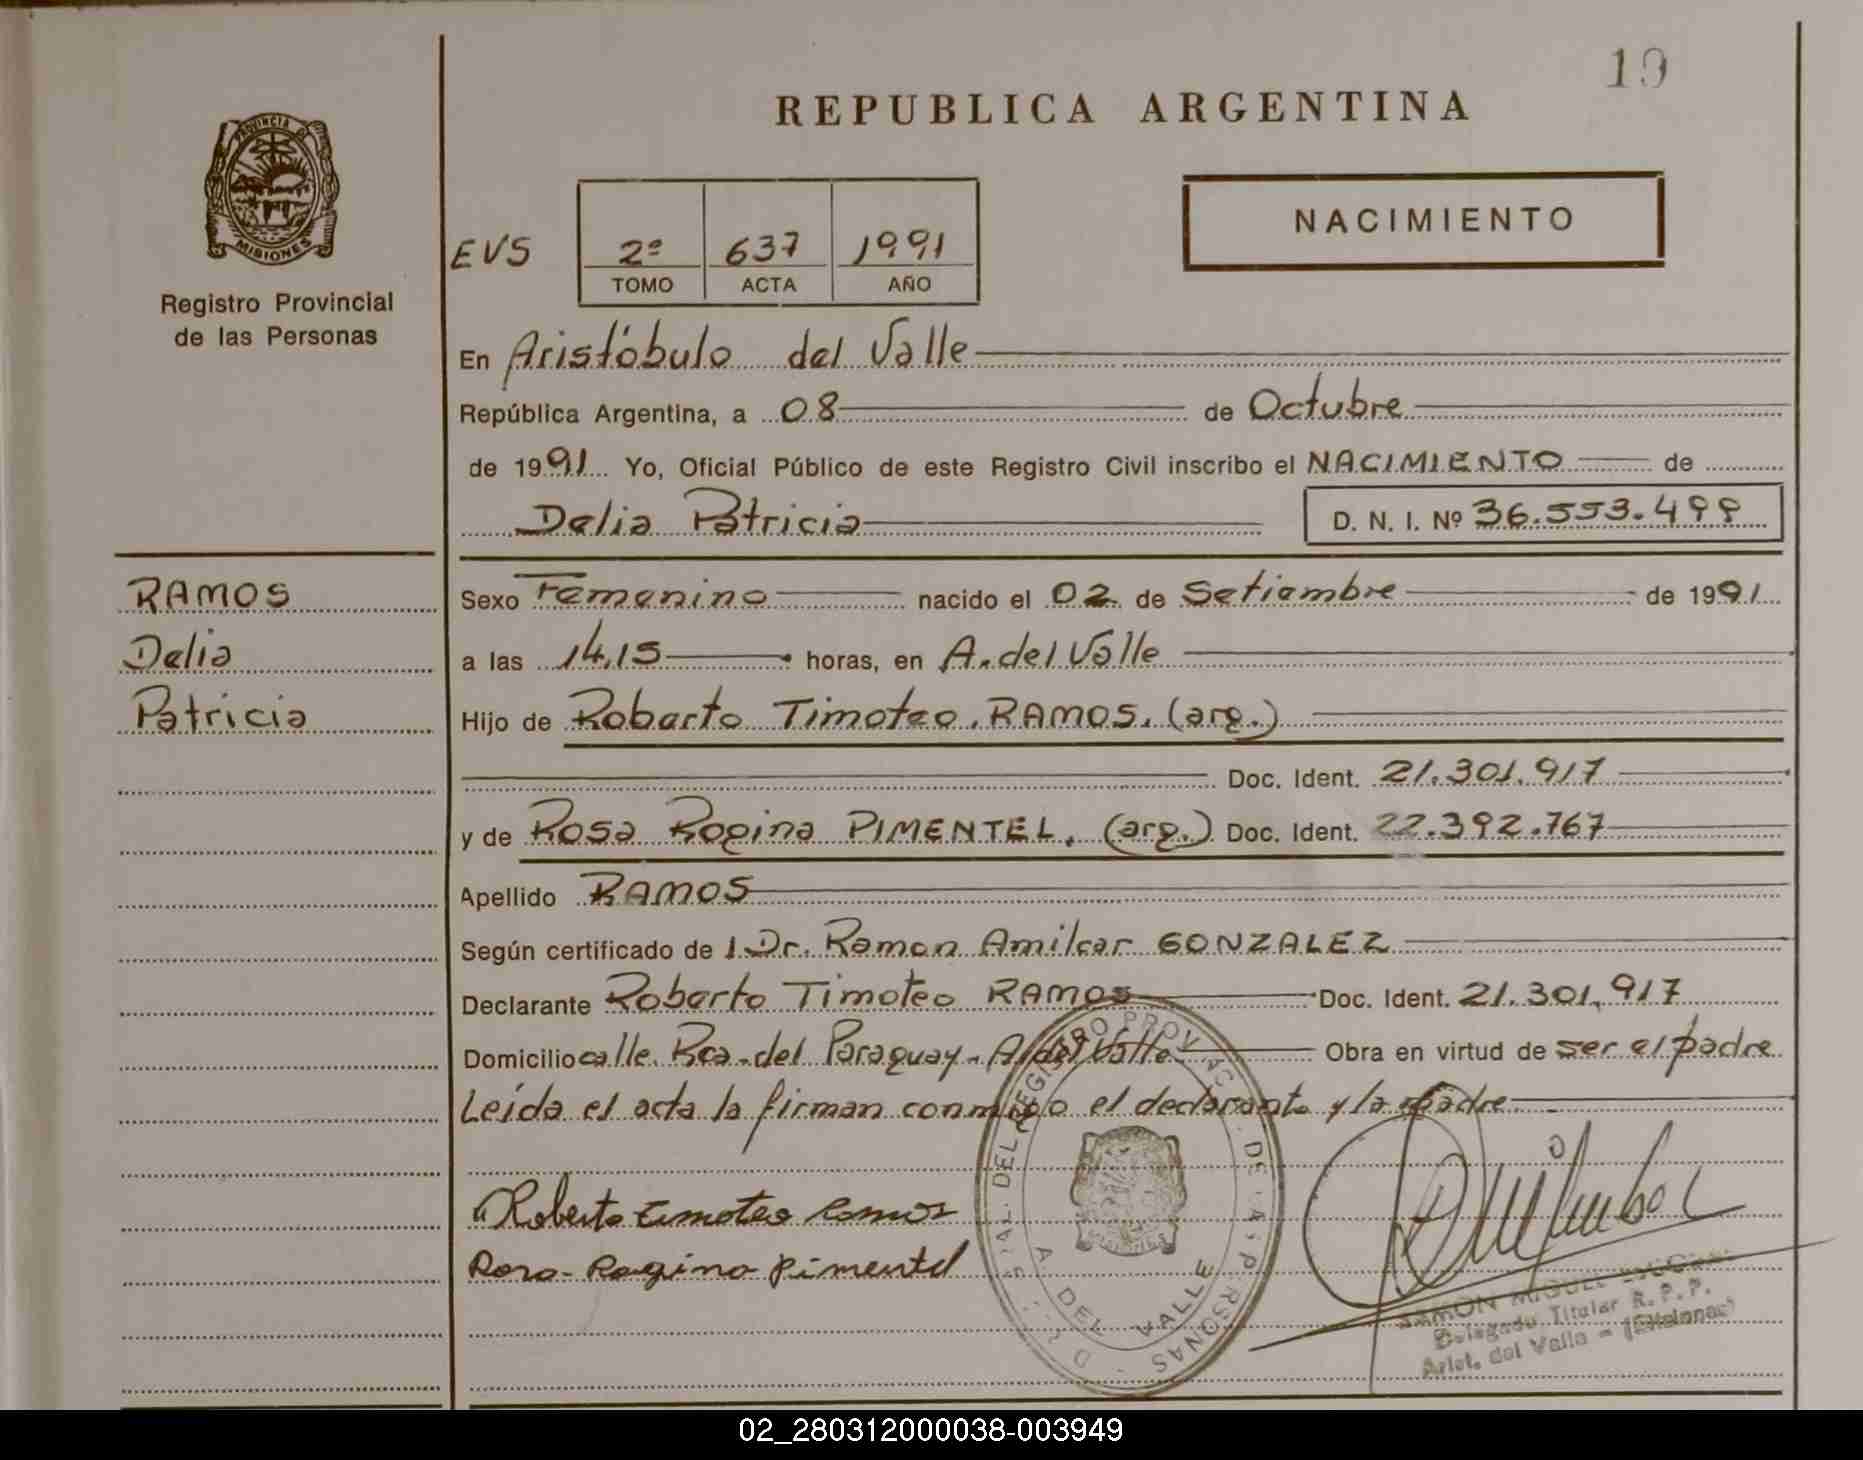 19
REPUBLICA ARGENTINA
PROVINCIA DE
MISIONES
Registro Provincial
de las Personas
NACIMIENTO
EVS
2º 637 1991
TOMO ACTA AÑO
En Aristóbulo del Valle
República Argentina, a 08 de Octubre
de 1991 Yo, Oficial Público de este Registro Civil inscribo el NACIMIENTO de
Delia Patricia D. N. I. Nº 36.553.499
RAMOS
Delia
Patricia
Sexo Femenino nacido el 02 de Setiembre de 1991
a las 14,15 horas, en A. del Valle
Hijo de Roberto Timoteo RAMOS. (arg.)
Doc. Ident. 21.301.917
y de Rosa Regina PIMENTEL. (arg.) Doc. Ident. 22.392.767
Apellido RAMOS
Según certificado de l Dr. Ramon Amilcar GONZALEZ
Declarante Roberto Timoteo RAMOS Doc. Ident. 21.301.917
Domicilio calle Rca. del Paraguay - A. del Valle Obra en virtud de ser el padre
Leída el acta la firman conmigo el declarante y la madre
Roberto timoteo Ramos
Rosa Ragina Pimentel
DEL REGISTRO PROVINC. DE LAS PERSONAS
A DEL VALLE
RAMON MIGUEL
Delegado Titular R. P. P.
Arist. del Valle - (Misiones)
02_280312000038-003949